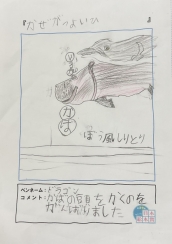 『かぜがつよいひ』
かば
ぼう風しりとり
ペンネーム:ドラゴン
コメント:かばの顔をかくのを
がんばりました